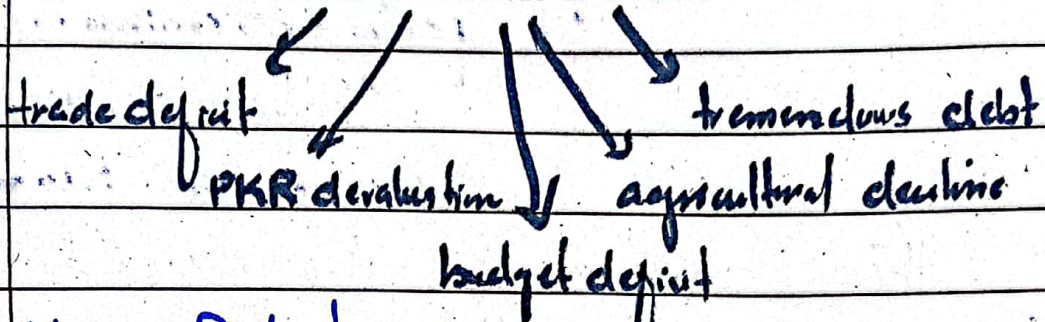 trade deficit
tremendous debt
PKR devaluation
agricultural decline
budget deficit